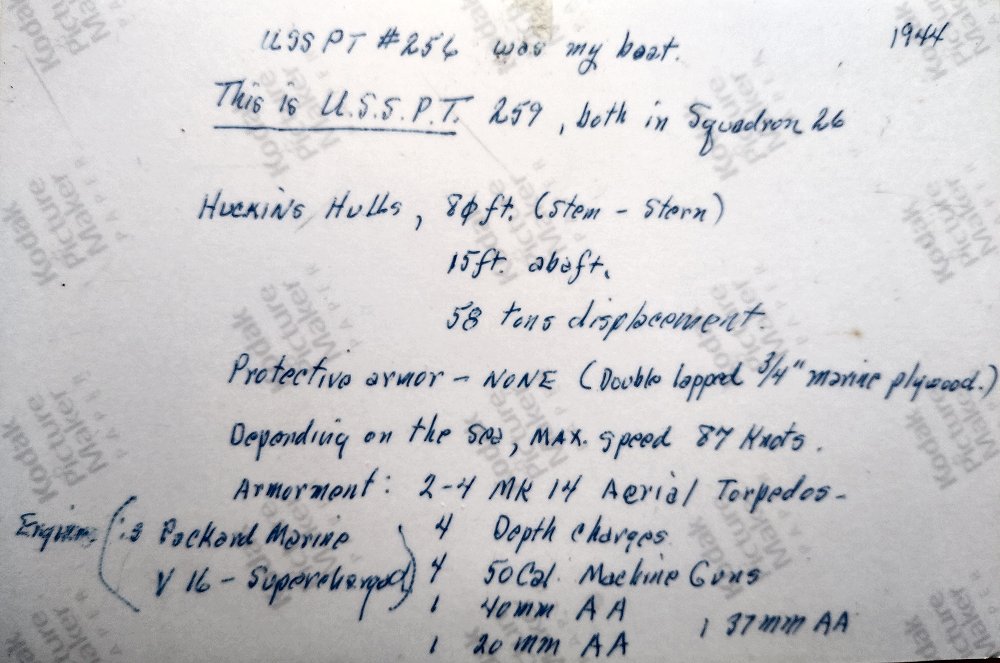 1944
USS PT #256 was my boat.
This is U.S.S.P.T. 259, both in Squadron 26
Huckins Hulls, 80 ft. (Stem - Stern)
15 ft. abaft.
58 tons displacement.
Protective armor - NONE (Double lapped 3/4" marine plywood.)
Depending on the sea, MAX. speed 87 Knots.
Armorment: 2-4 MK 14 Aerial Torpedos-
Engines (:3 Packard Marine
V 16 - Supercharged)
4 Depth charges
4 50 Cal. Machine Guns
1 40mm AA
1 37mm AA
1 20 mm AA
Kodak
Picture
Maker
PAPER